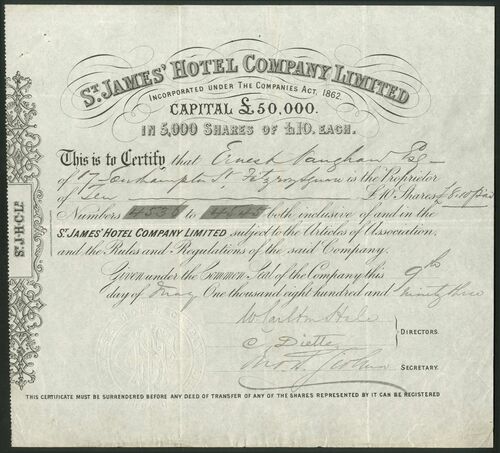 ST. JAMES' HOTEL COMPANY LIMITED
INCORPORATED UNDER THE COMPANIES ACT, 1862
CAPITAL £50,000.
IN 5,000 SHARES OF £10. EACH.
This is to Certify that Ernest Vaughan Esq
of 17 Southampton St. Fitzroy Square is the Proprietor
of Ten £10 Shares £8.10 paid
Numbers to both inclusive of and in the
ST. JAMES' HOTEL COMPANY LIMITED subject to the Articles of Association,
and the Rules and Regulations of the said Company.
Given under the Common Seal of the Company this 9th
day of May One thousand eight hundred and ninety three
W Carlton Hale
C Diette
DIRECTORS.
SECRETARY.
THIS CERTIFICATE MUST BE SURRENDERED BEFORE ANY DEED OF TRANSFER OF ANY OF THE SHARES REPRESENTED BY IT CAN BE REGISTERED
ST. J. H. C. LD.